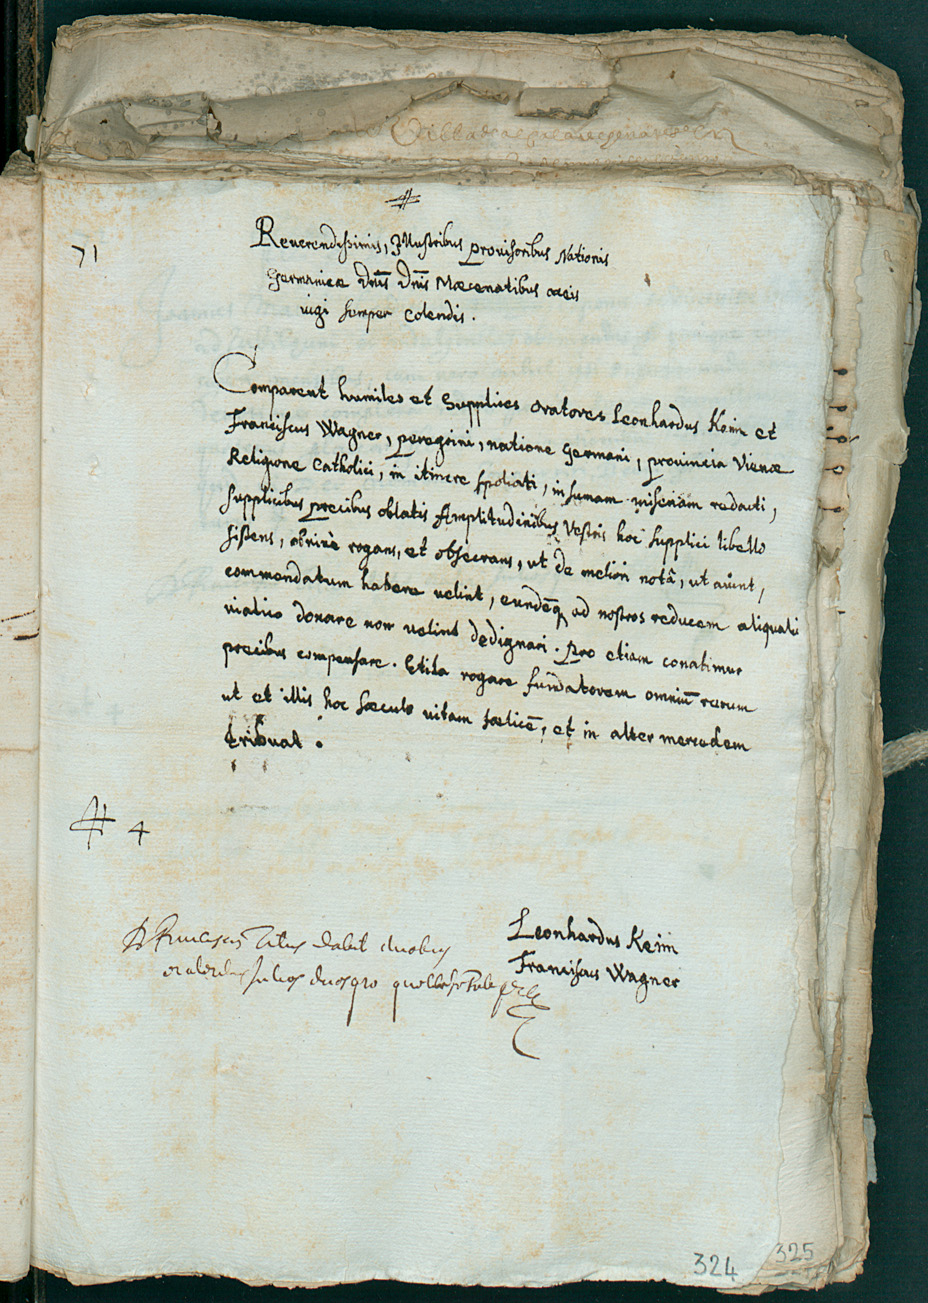 71
Reuerendissimis, Illustribus prouisoribus Nationis
Germanicæ dn̄is dn̄is Mæcenatibus
semper colendis.
Comparent humiles et supplices oratores Leonhardus Keim et
Franciscus Wagner, peregrini, natione Germani, prouincia Viena
Religione Catholici, in itinere spoliati, in sumam miseriam redacti,
supplicibus precibus oblatis Amplitudinibus Vestris hoc supplici libello
sistens, rogans, et obsecrans, ut de meliori notâ, ut aiunt,
commendatum habere uelint, eundēq ad nostros reducem aliquali
uiatico donare non uelint dedignari. Pro etiam conatimur
precibus compensare. Etila rogare fundatorem omniū rerum
ut et illis hoc sæculo uitam fælicē, et in alter mercedem
tribuat.
# 4
Leonhardus Keim
Franciscus Wagner
dabit duobus
oratoribus Julios duos pro
324
325